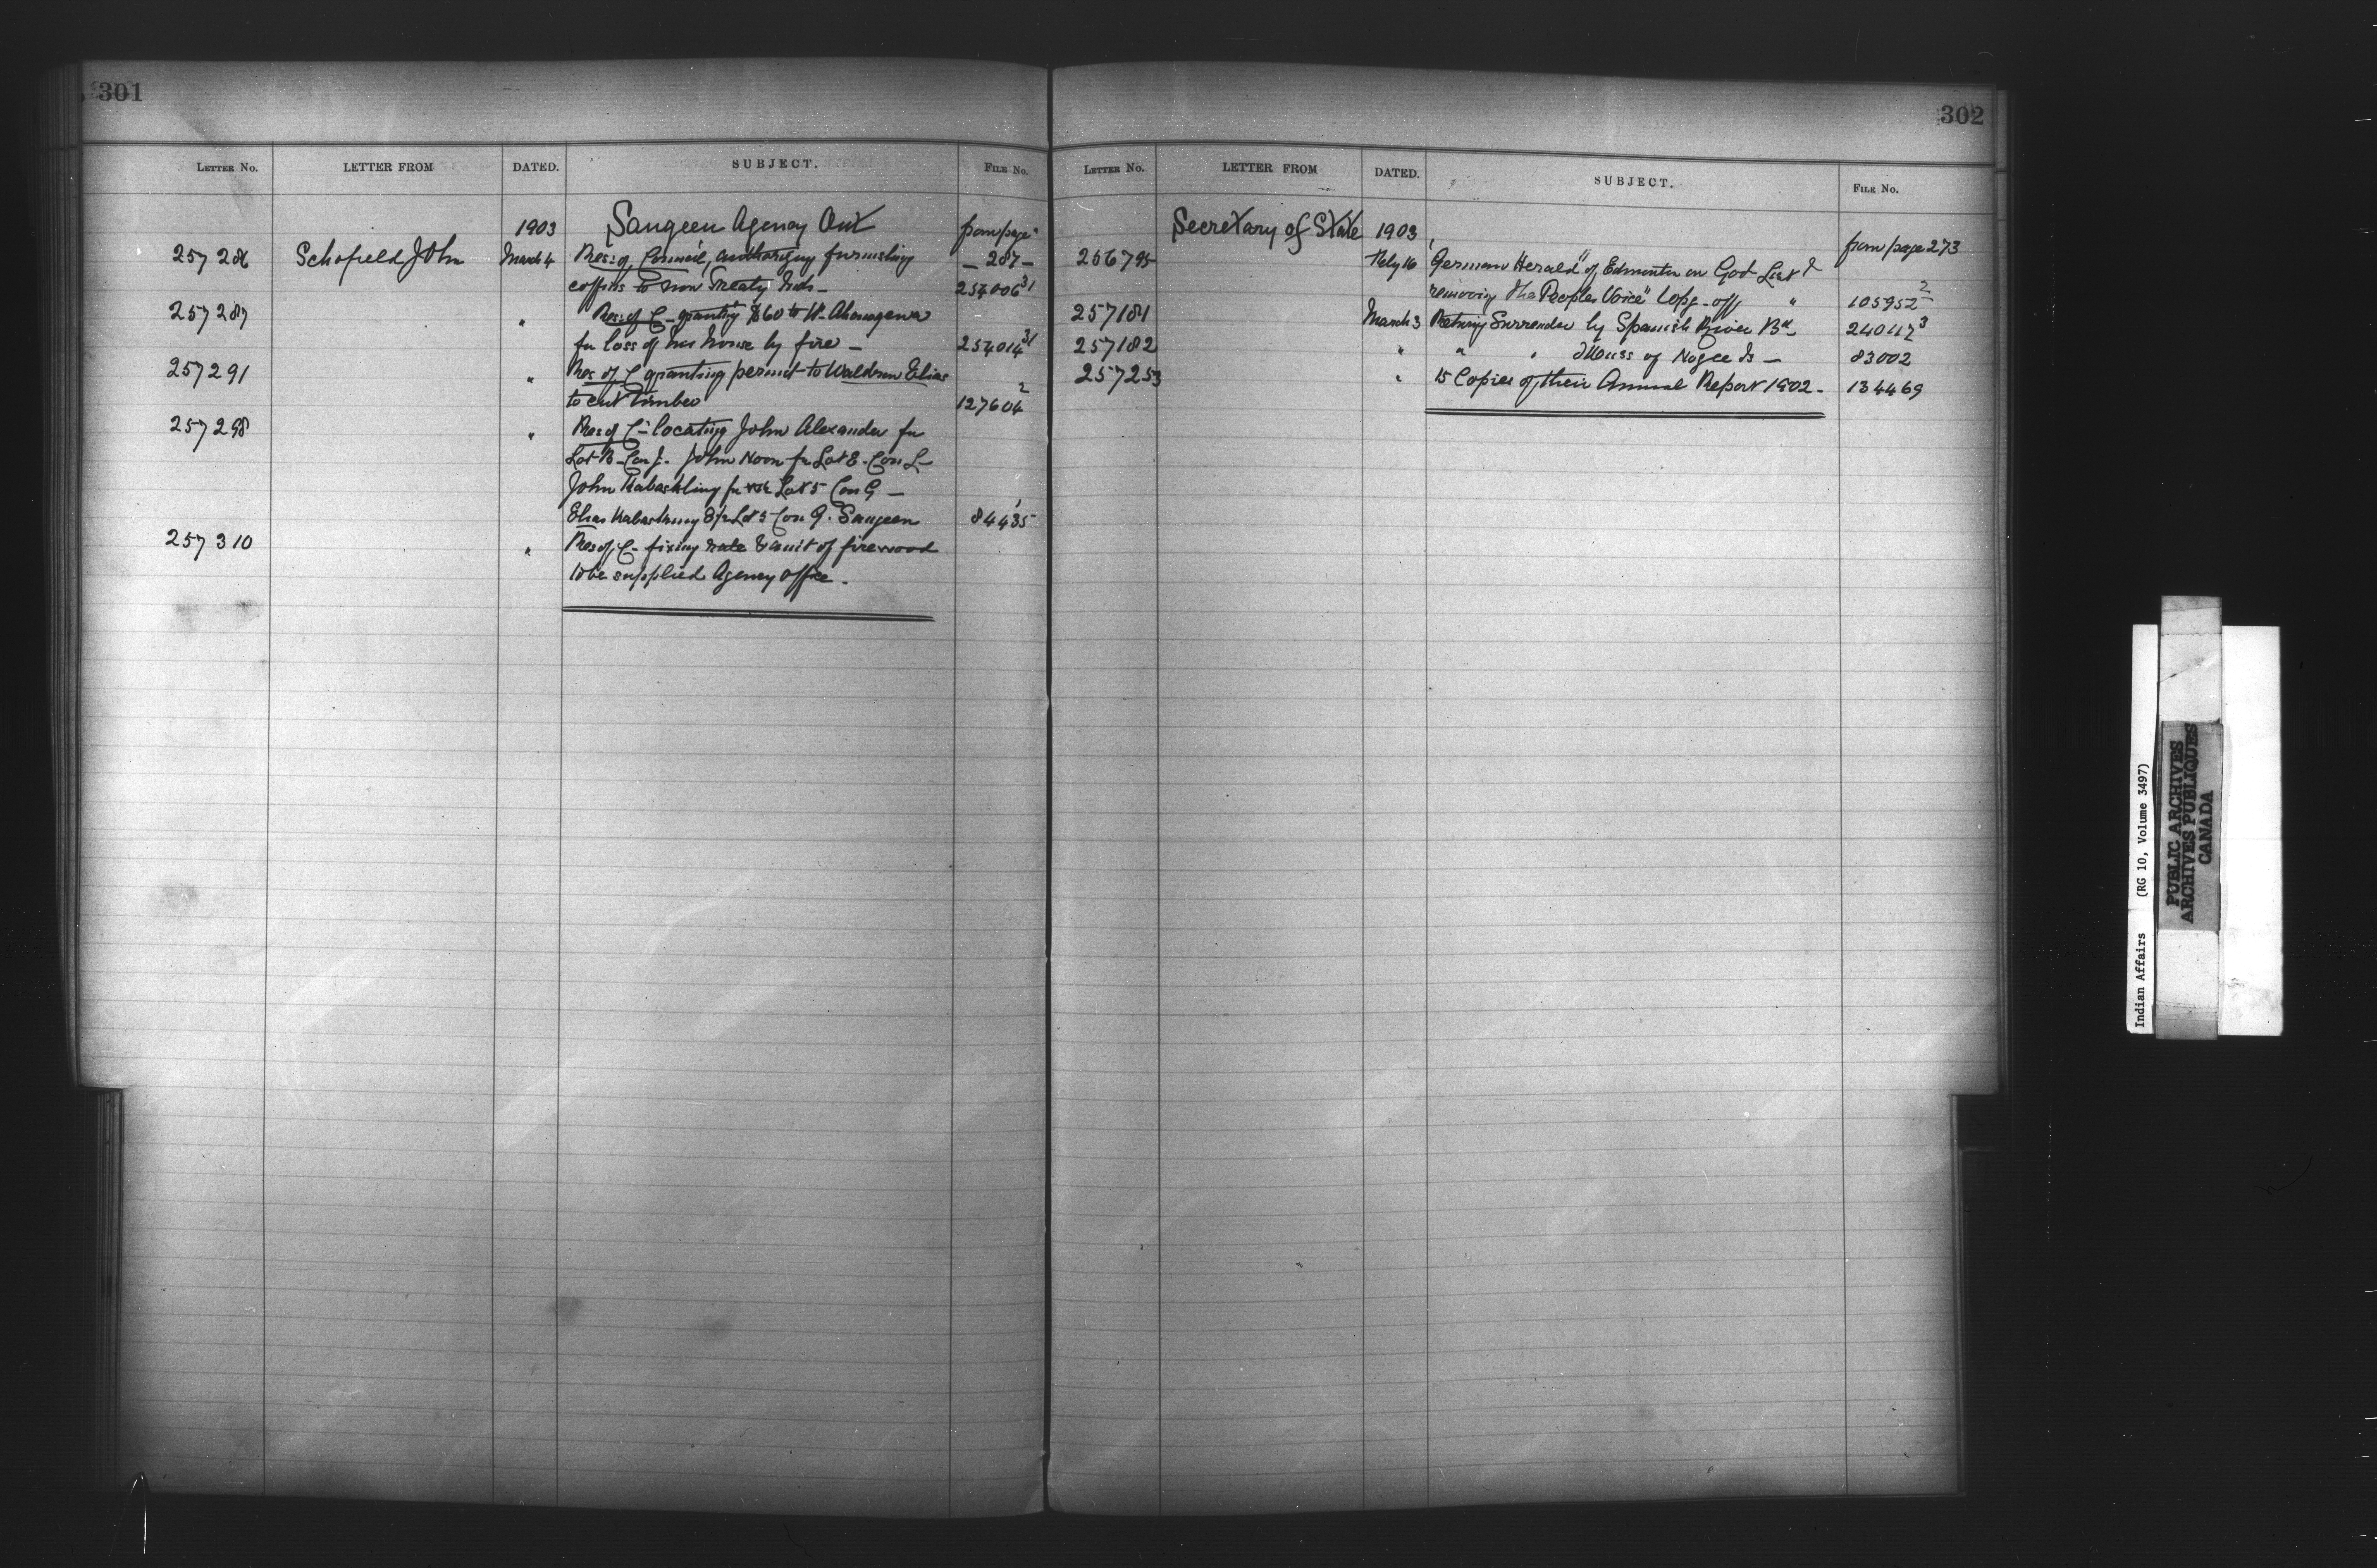 301
LETTER NO. LETTER FROM DATED. SUBJECT. FILE NO.
1903 Saugeen Agency Ont from page
257286 Schofield John March 4 Res: of Council, authorizing furnishing — 287 —
coffins to non Treaty Inds — 254006 31
257287 " Res: of C — granting $60 to W.
for loss of her house by fire — 254014 31
257291 " Res of C granting permit to Waldron Elias
to cut timber 127604 2
257298 " Res of C — locating John Alexander for
Lot B — Con J. John Noon for Lot 8 — Con L —
John Kabaskling for Lot 5 Con G —
Elias Lot 5 Con 9. Saugeen 84435
257310 " Res of C — fixing rate & amt of firewood
to be supplied Agency office.
302
LETTER NO. LETTER FROM DATED. SUBJECT. FILE NO.
Secretary of State 1903 from page 273
256795 Feby 16 German Herald" of Edmonton on Govt List &
removing the Peoples Voice" off " 105952 2
257181 March 3 Returng Surrender by Spanish River Bd — 240117 3
257182 " " " of Nogee Is — 83002
257253 " 15 Copies of their Annual Report 1902 — 134469
Indian Affairs (RG 10, Volume 3497)
PUBLIC ARCHIVES
ARCHIVES PUBLIQUES
CANADA